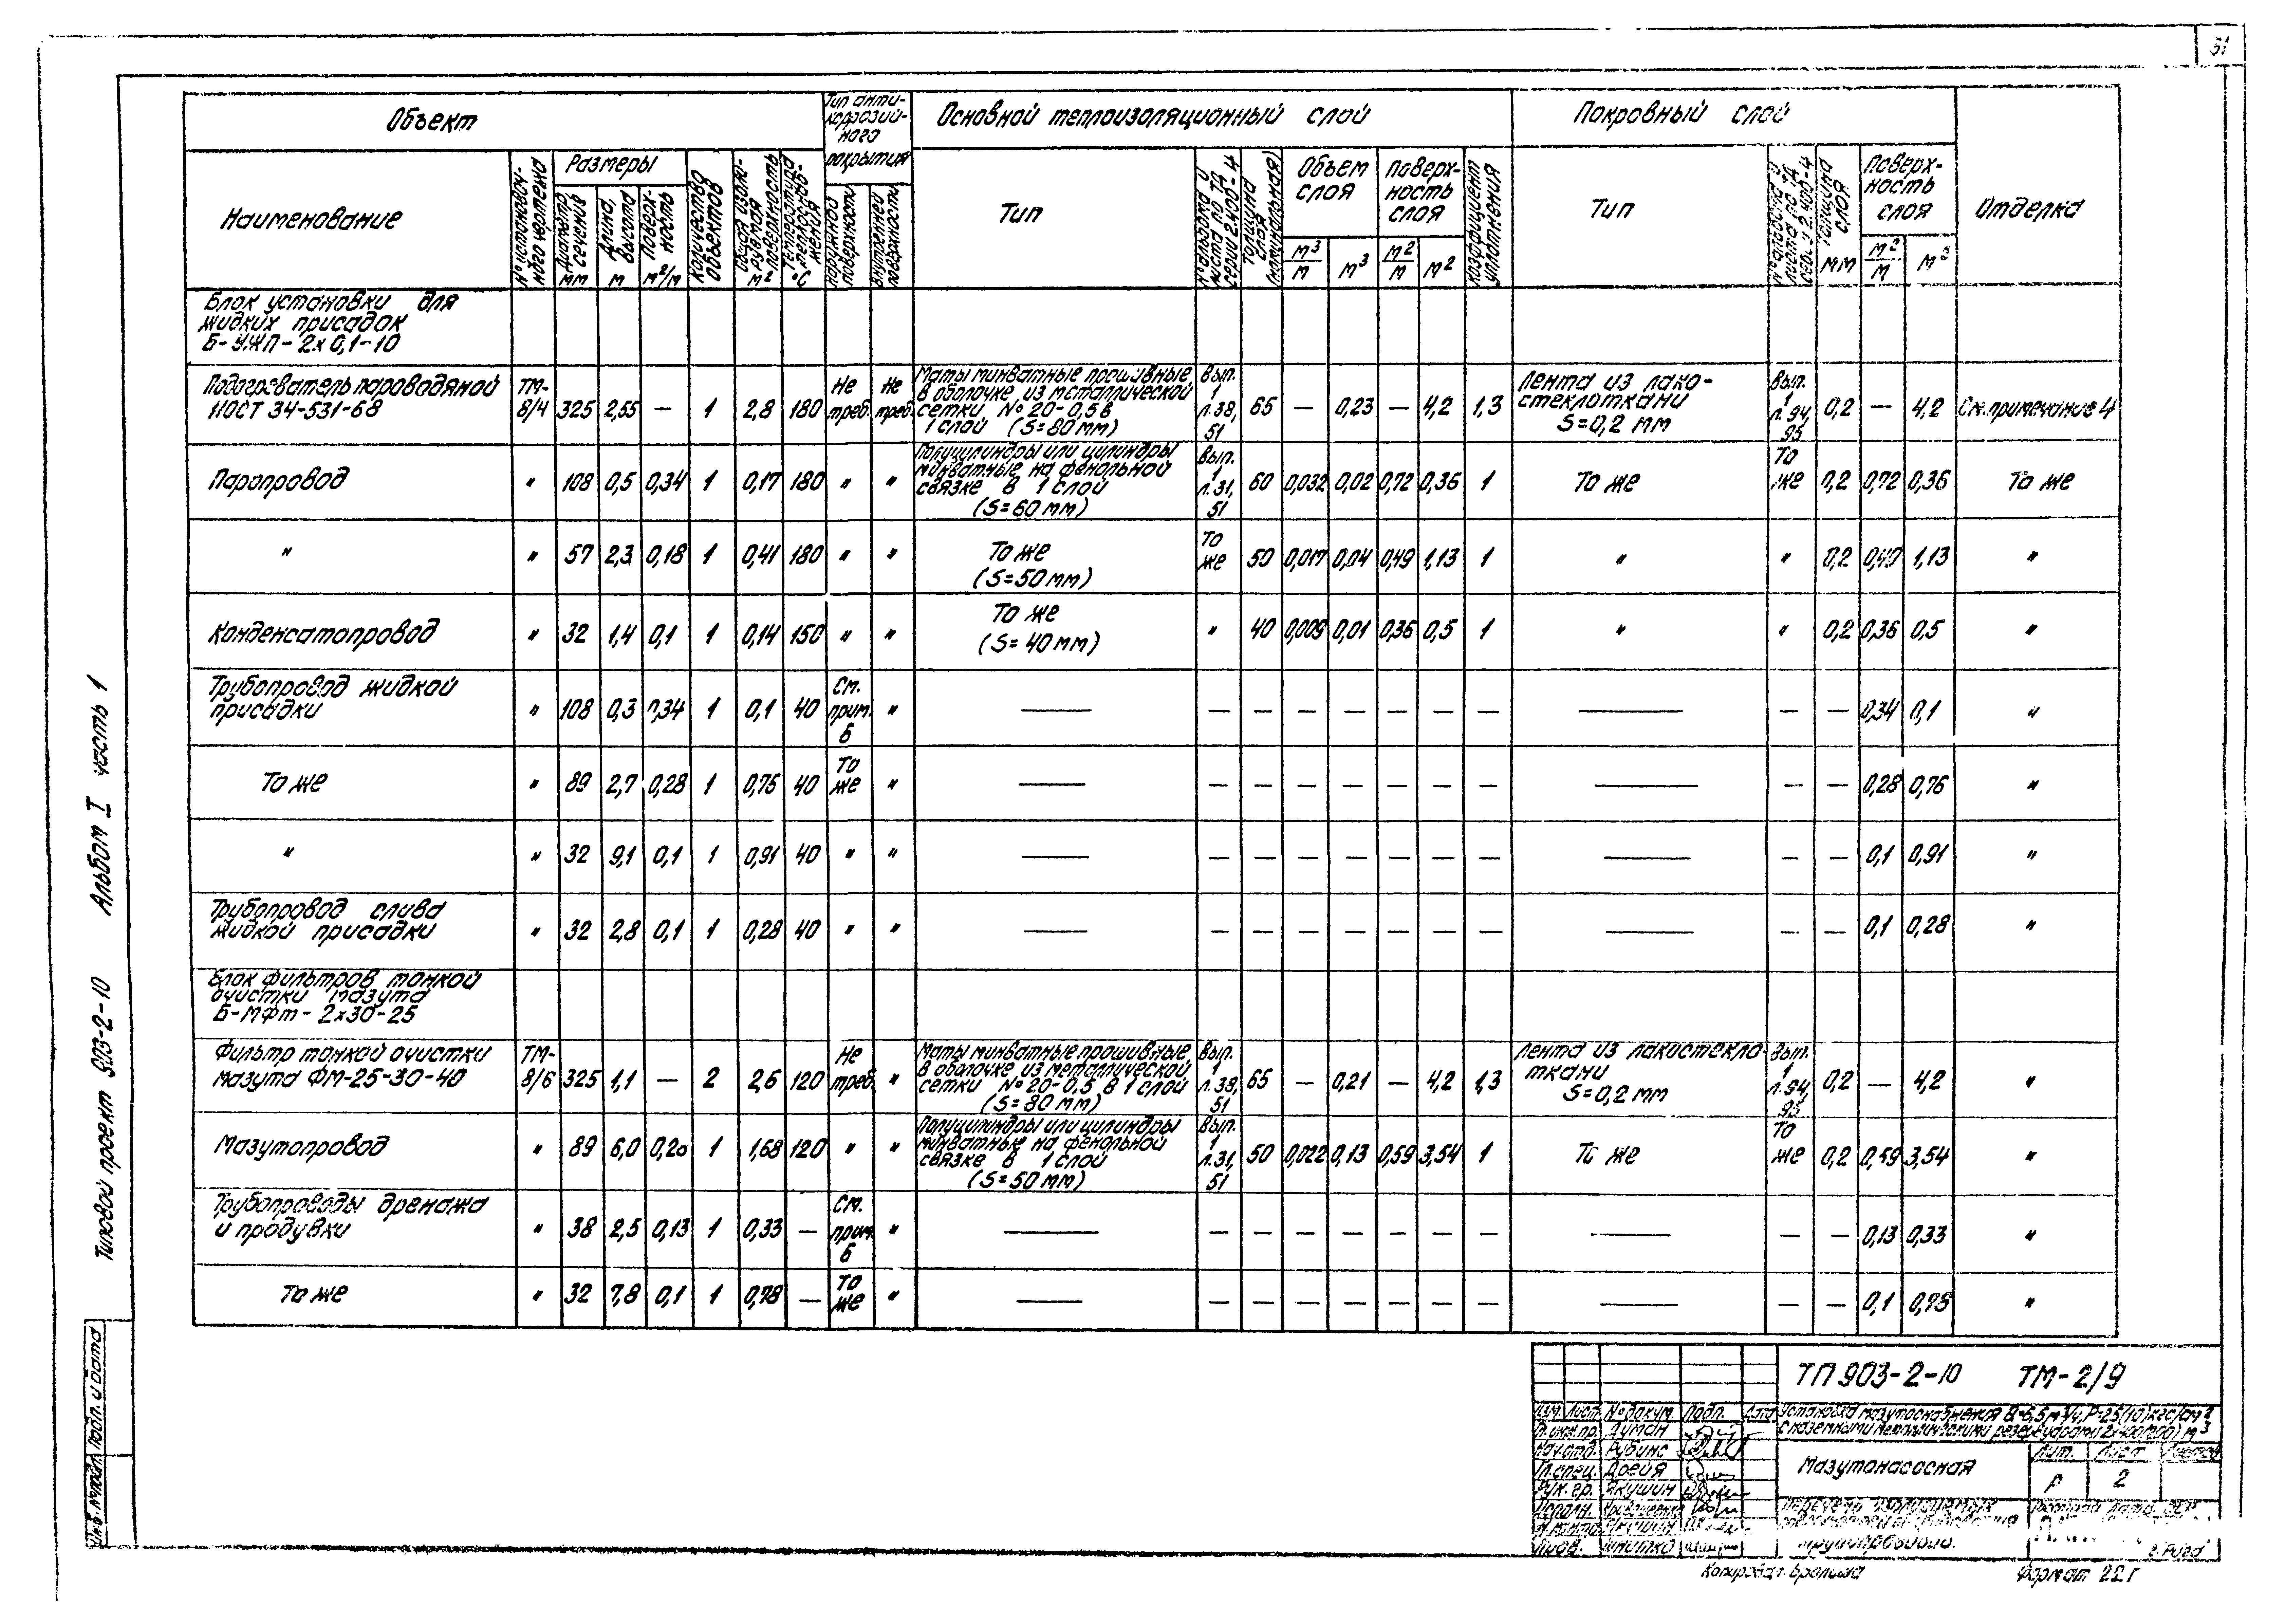 51
Объект
Тип анти-
коррозий-
ного
покрытия
Основной теплоизоляционный слой
Покровный слой
Отделка
Наименование
№ установоч-
ного чертежа
Размеры
Диаметр
сечения
мм
Длина,
высота
м
Поверх-
ность
м²/м
Количество
объектов
Общая изоли-
руемая
поверхность
м²
Температура
теплоснаб-
жения
°С
наружной
поверхности
внутренней
поверхности
Тип
№ альбома и
листа по ТД
серии 2.400-4
Толщина
слоя
(номинальная)
Объем
слоя
м³/м
м³
Поверх-
ность
слоя
м²/м
м²
Коэффициент
уплотнения
Тип
№ альбома и
листа по ТД
серии 2.400-4
Толщина
слоя
мм
Поверх-
ность
слоя
м²/м
м²
Блок установки для
жидких присадок
Б-УЖП-2х0,1-10
Подогреватель пароводяной
МОСТ 34-531-68
ТМ-
8/4 325 2,55 — 1 2,8 180 Не треб. Не треб.
Маты минватные прошивные
в оболочке из металлической
сетки № 20-0,5 в
1 слой (S=80мм)
Вып.
1
л.38,
51
65 — 0,23 — 4,2 1,3
Лента из лако-
стеклоткани
S=0,2 мм
Вып.
1
л.94,
95
0,2 — 4,2 См. примечание 4
Паропровод " 108 0,5 0,34 1 0,17 180 " "
Полуцилиндры или цилиндры
минватные на фенольной
связке в 1 слой
(S=60мм)
Вып.
1
л.31,
51
60 0,032 0,02 0,72 0,36 1 То же То же 0,2 0,72 0,36 То же
" " 57 2,3 0,18 1 0,41 180 " "
То же
(S=50мм)
То же 50 0,017 0,04 0,49 1,13 1 " " 0,2 0,49 1,13 "
Конденсатопровод " 32 1,4 0,1 1 0,14 150 " "
То же
(S=40мм)
" 40 0,009 0,01 0,36 0,5 1 " " 0,2 0,36 0,5 "
Трубопровод жидкой
присадки
" 108 0,3 0,34 1 0,1 40 См. прим. 6 " — — — — — — — — — — 0,34 0,1 "
То же " 89 2,7 0,28 1 0,75 40 То же " — — — — — — — — — — 0,28 0,76 "
" " 32 9,1 0,1 1 0,91 40 " " — — — — — — — — — — 0,1 0,91 "
Трубопровод слива
жидкой присадки
" 32 2,8 0,1 1 0,28 40 " " — — — — — — — — — — 0,1 0,28 "
Блок фильтров тонкой
очистки мазута
Б-МФт-2х30-25
Фильтр тонкой очистки
мазута ФМ-25-30-40
ТМ-
8/6 325 1,1 — 2 2,6 120 Не треб. "
Маты минватные прошивные
в оболочке из металлической
сетки № 20-0,5 в 1 слой
(S=80мм)
Вып.
1
л.38,
51
65 — 0,21 — 4,2 1,3
Лента из лакостекло-
ткани
S=0,2 мм
Вып.
1
л.94,
95
0,2 — 4,2 "
Мазутопровод " 89 6,0 0,20 1 1,68 120 " "
Полуцилиндры или цилиндры
минватные на фенольной
связке в 1 слой
(S=50мм)
Вып.
1
л.31,
51
50 0,022 0,13 0,59 3,54 1 То же То же 0,2 0,59 3,54 "
Трубопроводы дренажа
и продувки
" 38 2,5 0,13 1 0,33 — См. прим. 6 " — — — — — — — — — — 0,13 0,33 "
То же " 32 7,8 0,1 1 0,78 — То же " — — — — — — — — — — 0,1 0,75 "
Типовой проект 903-2-10 Альбом I часть 1
Инв. № подл. Подп. и дата
ТП 903-2-10 ТМ-2/9
Изм. Лист № докум. Подп. Дата
Гл. инж. пр. Думан
Нач. отд. Рубинс
Гл. спец. Дрейя
Рук. гр. Якушин
Установка мазутоснабжения В=6,5м³/ч, Р=25(10)кгс/см²
с наземными металлическими резервуарами
Мазутонасосная
Лит. Лист Листов
Р 2
трубопроводов.
г. Рига
Копировал:
Формат 22г